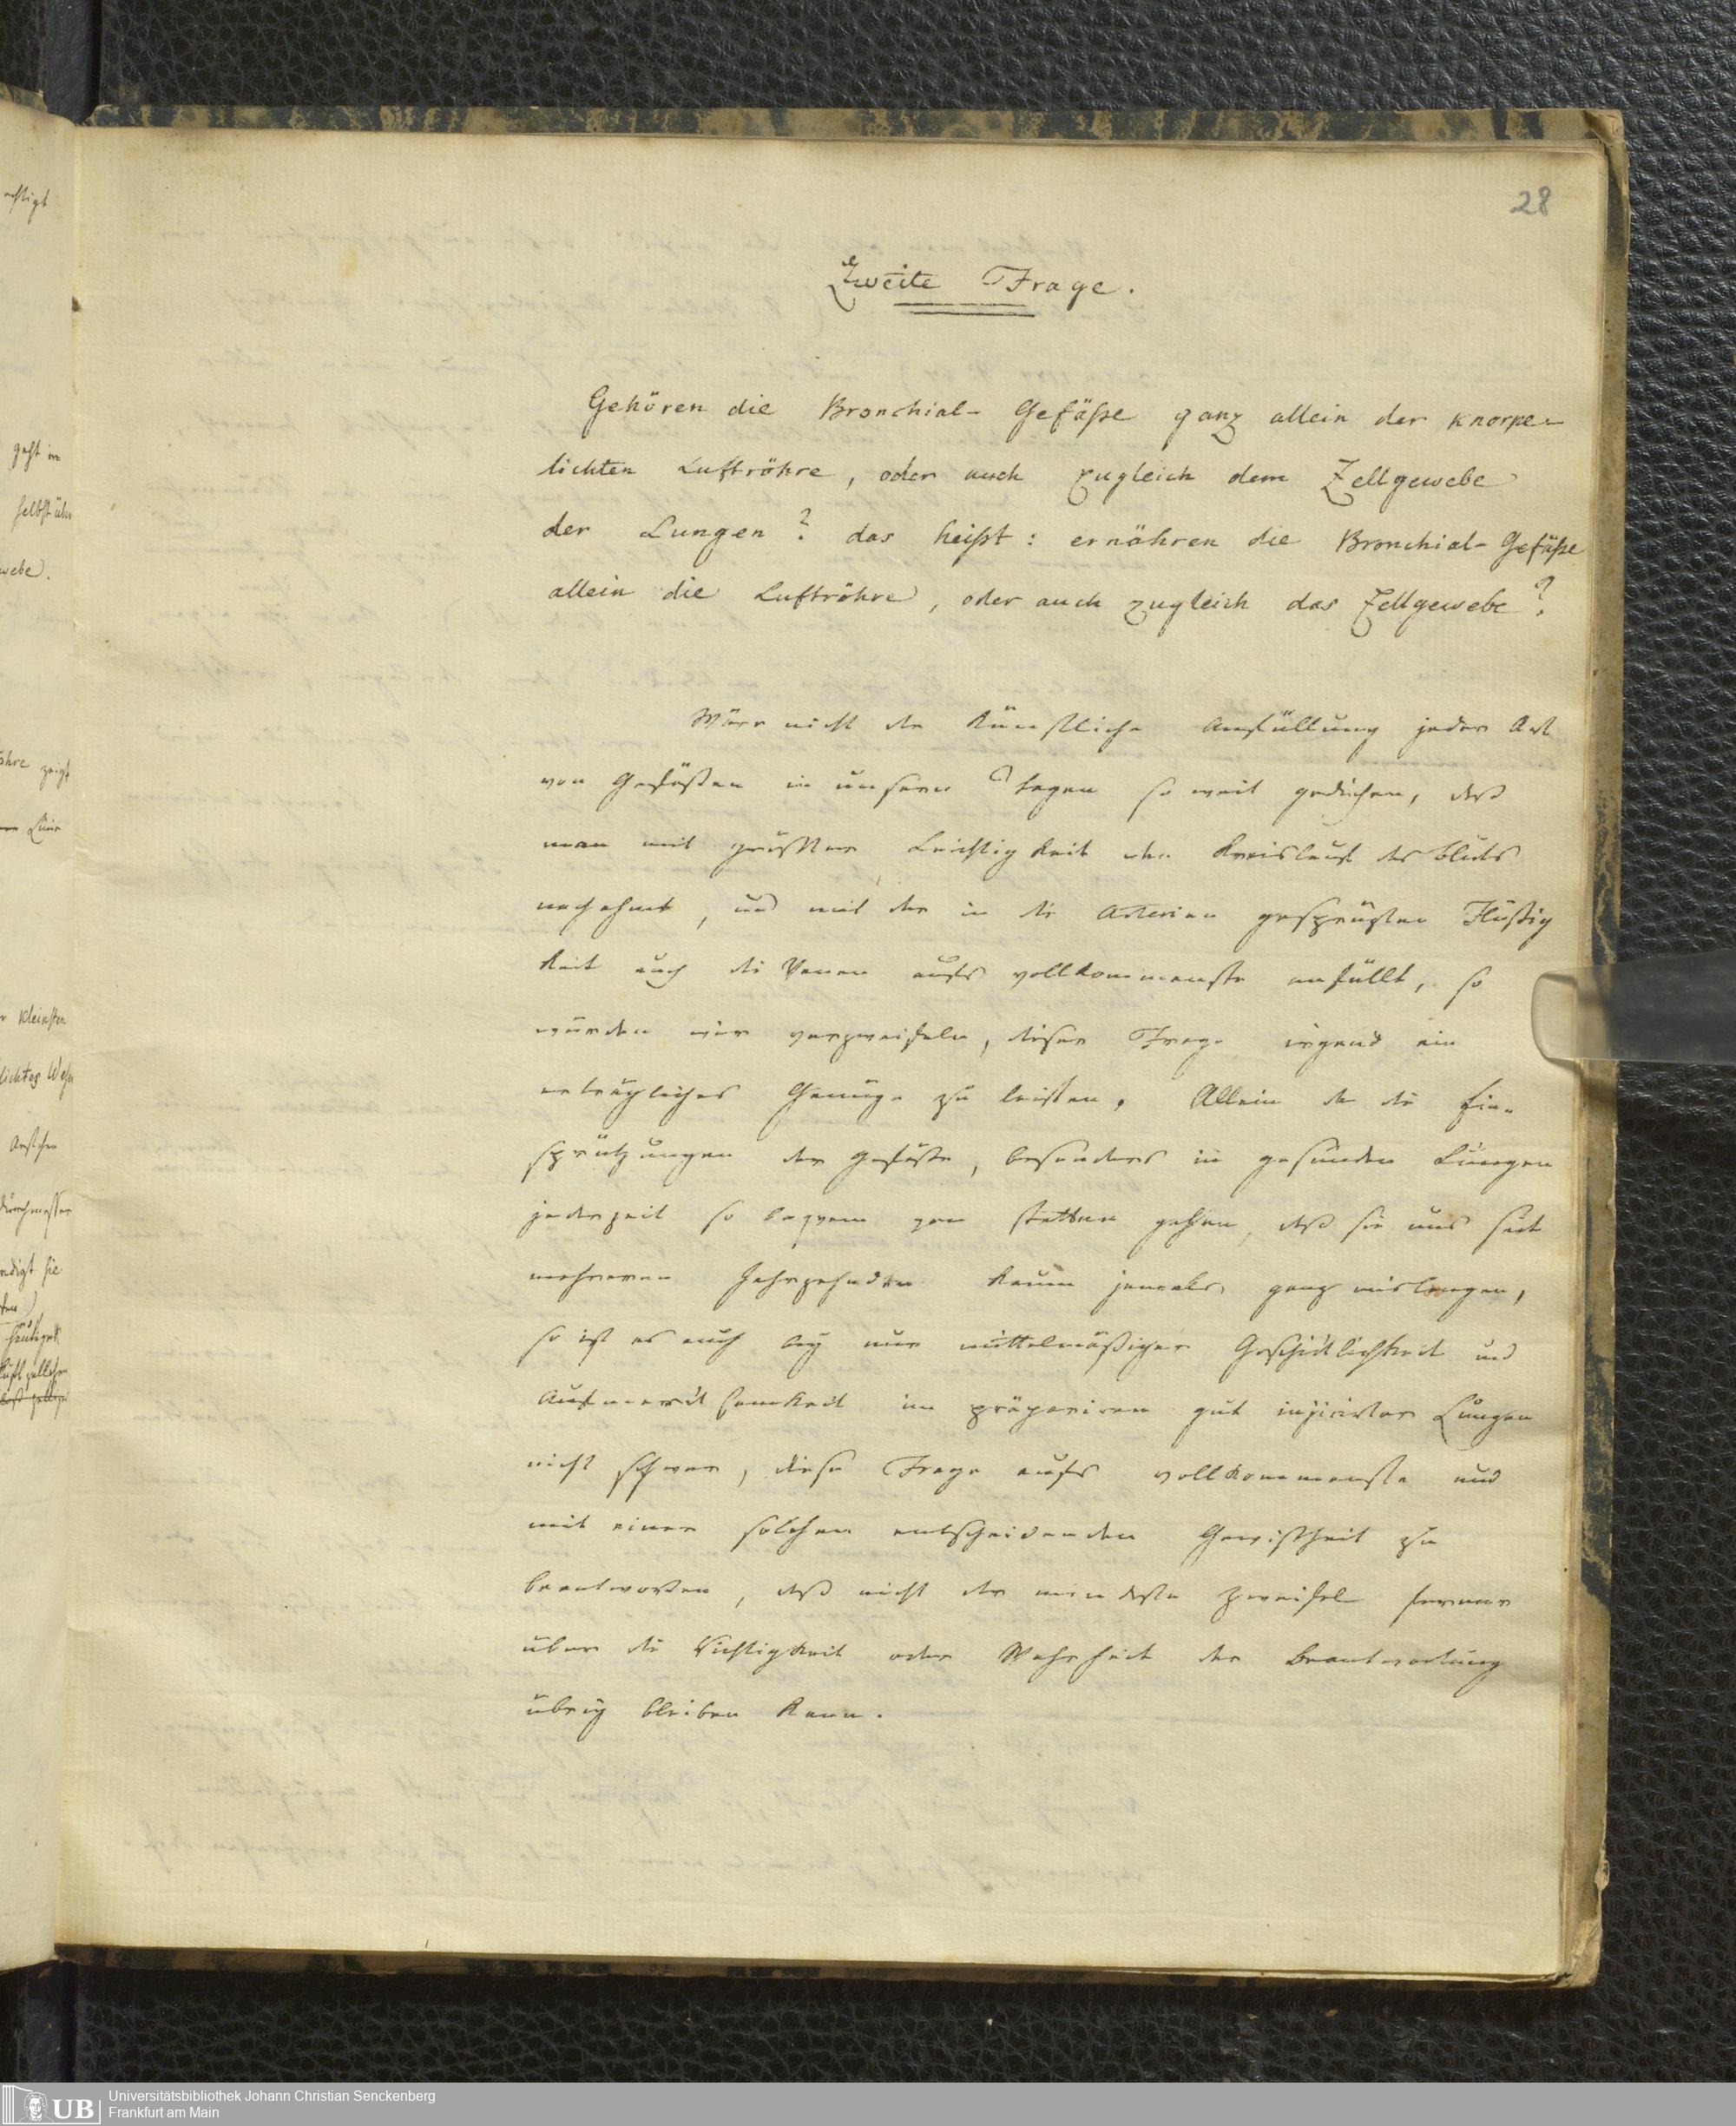 28
Zweite Frage.
Gehören die Bronchial- Gefäße ganz allein der knorpe-
lichten Luftröhre, oder auch zugleich dem Zellgewebe
der Lungen? das heißt: ernähren die Bronchial-Gefäße
allein die Luftröhre, oder auch zugleich das Zellgewebe?
Wäre nicht die künstliche Anfüllung jeder Art
von Gefäßen in unsern Tagen so weit gediehen, daß
man mit größter Leichtigkeit den Kreislauf des Bluts
nachahmt, und mit der in die Arterien gesprüzten Flüßig
keit auch die Venen aufs vollkommenste anfüllt, so
würden wir verzweifeln, dieser Frage irgend ein
erträgliches Genüge zu leisten. Allein da die Ein-
sprützungen der Gefäße, besonders in gesunden Lungen
jederzeit so bequem von statten gehen, daß sie uns seit
mehreren Jahrzehndten kaum jemals ganz mislungen,
so ist es auch bey nur mittelmäßiger Geschicklichkeit und
Aufmerksamkeit im präpariren gut injicirter Lungen
nicht schwer, diese Frage aufs vollkommenste und
mit einer solchen entscheidenden Gewißheit zu
beantworten, daß nicht der mindeste Zweifel ferner
über die Richtigkeit oder Wahrheit der Beantwortung
übrig bleiben kann.
geht in
selbst über
webe.
zeigt
kleinsten
Durchmesser
UB
Universitätsbibliothek Johann Christian Senckenberg
Frankfurt am Main